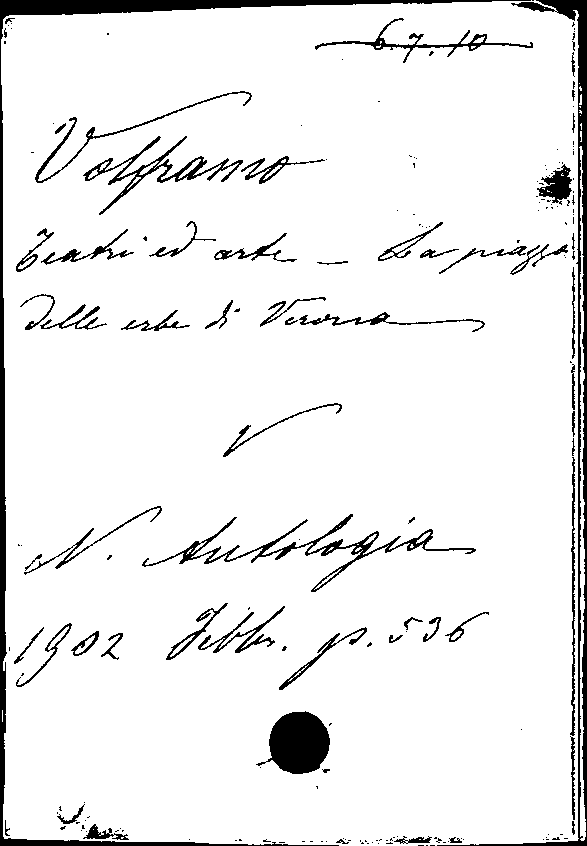 6.7.10
Volframo
Teatri ed arte – La piazza
delle erbe di Verona
V
N. Antologia
1902 Febbr. p. 536